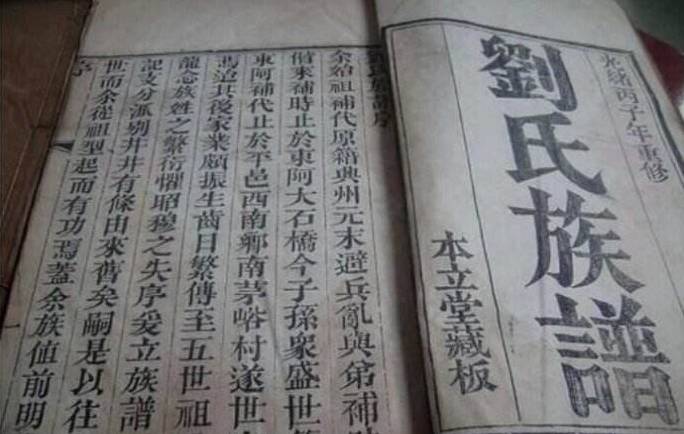 光緒丙子年重修
劉氏族譜
本立堂藏板
氏族譜序
余始祖補代原籍興州元末避兵亂與弟補
偕來補時止於東阿大石橋今子孫衆盛世
東阿補代止於平邑西南鄉南茅峪村遂世
焉迨其後家業頗振生齒日繁傳至五世祖
龍念族姓之繁衍懼昭穆之失序爰立族譜
記支分派別井井有條由來舊矣嗣是以往
世而余從祖型起而有功焉蓋余族値前明